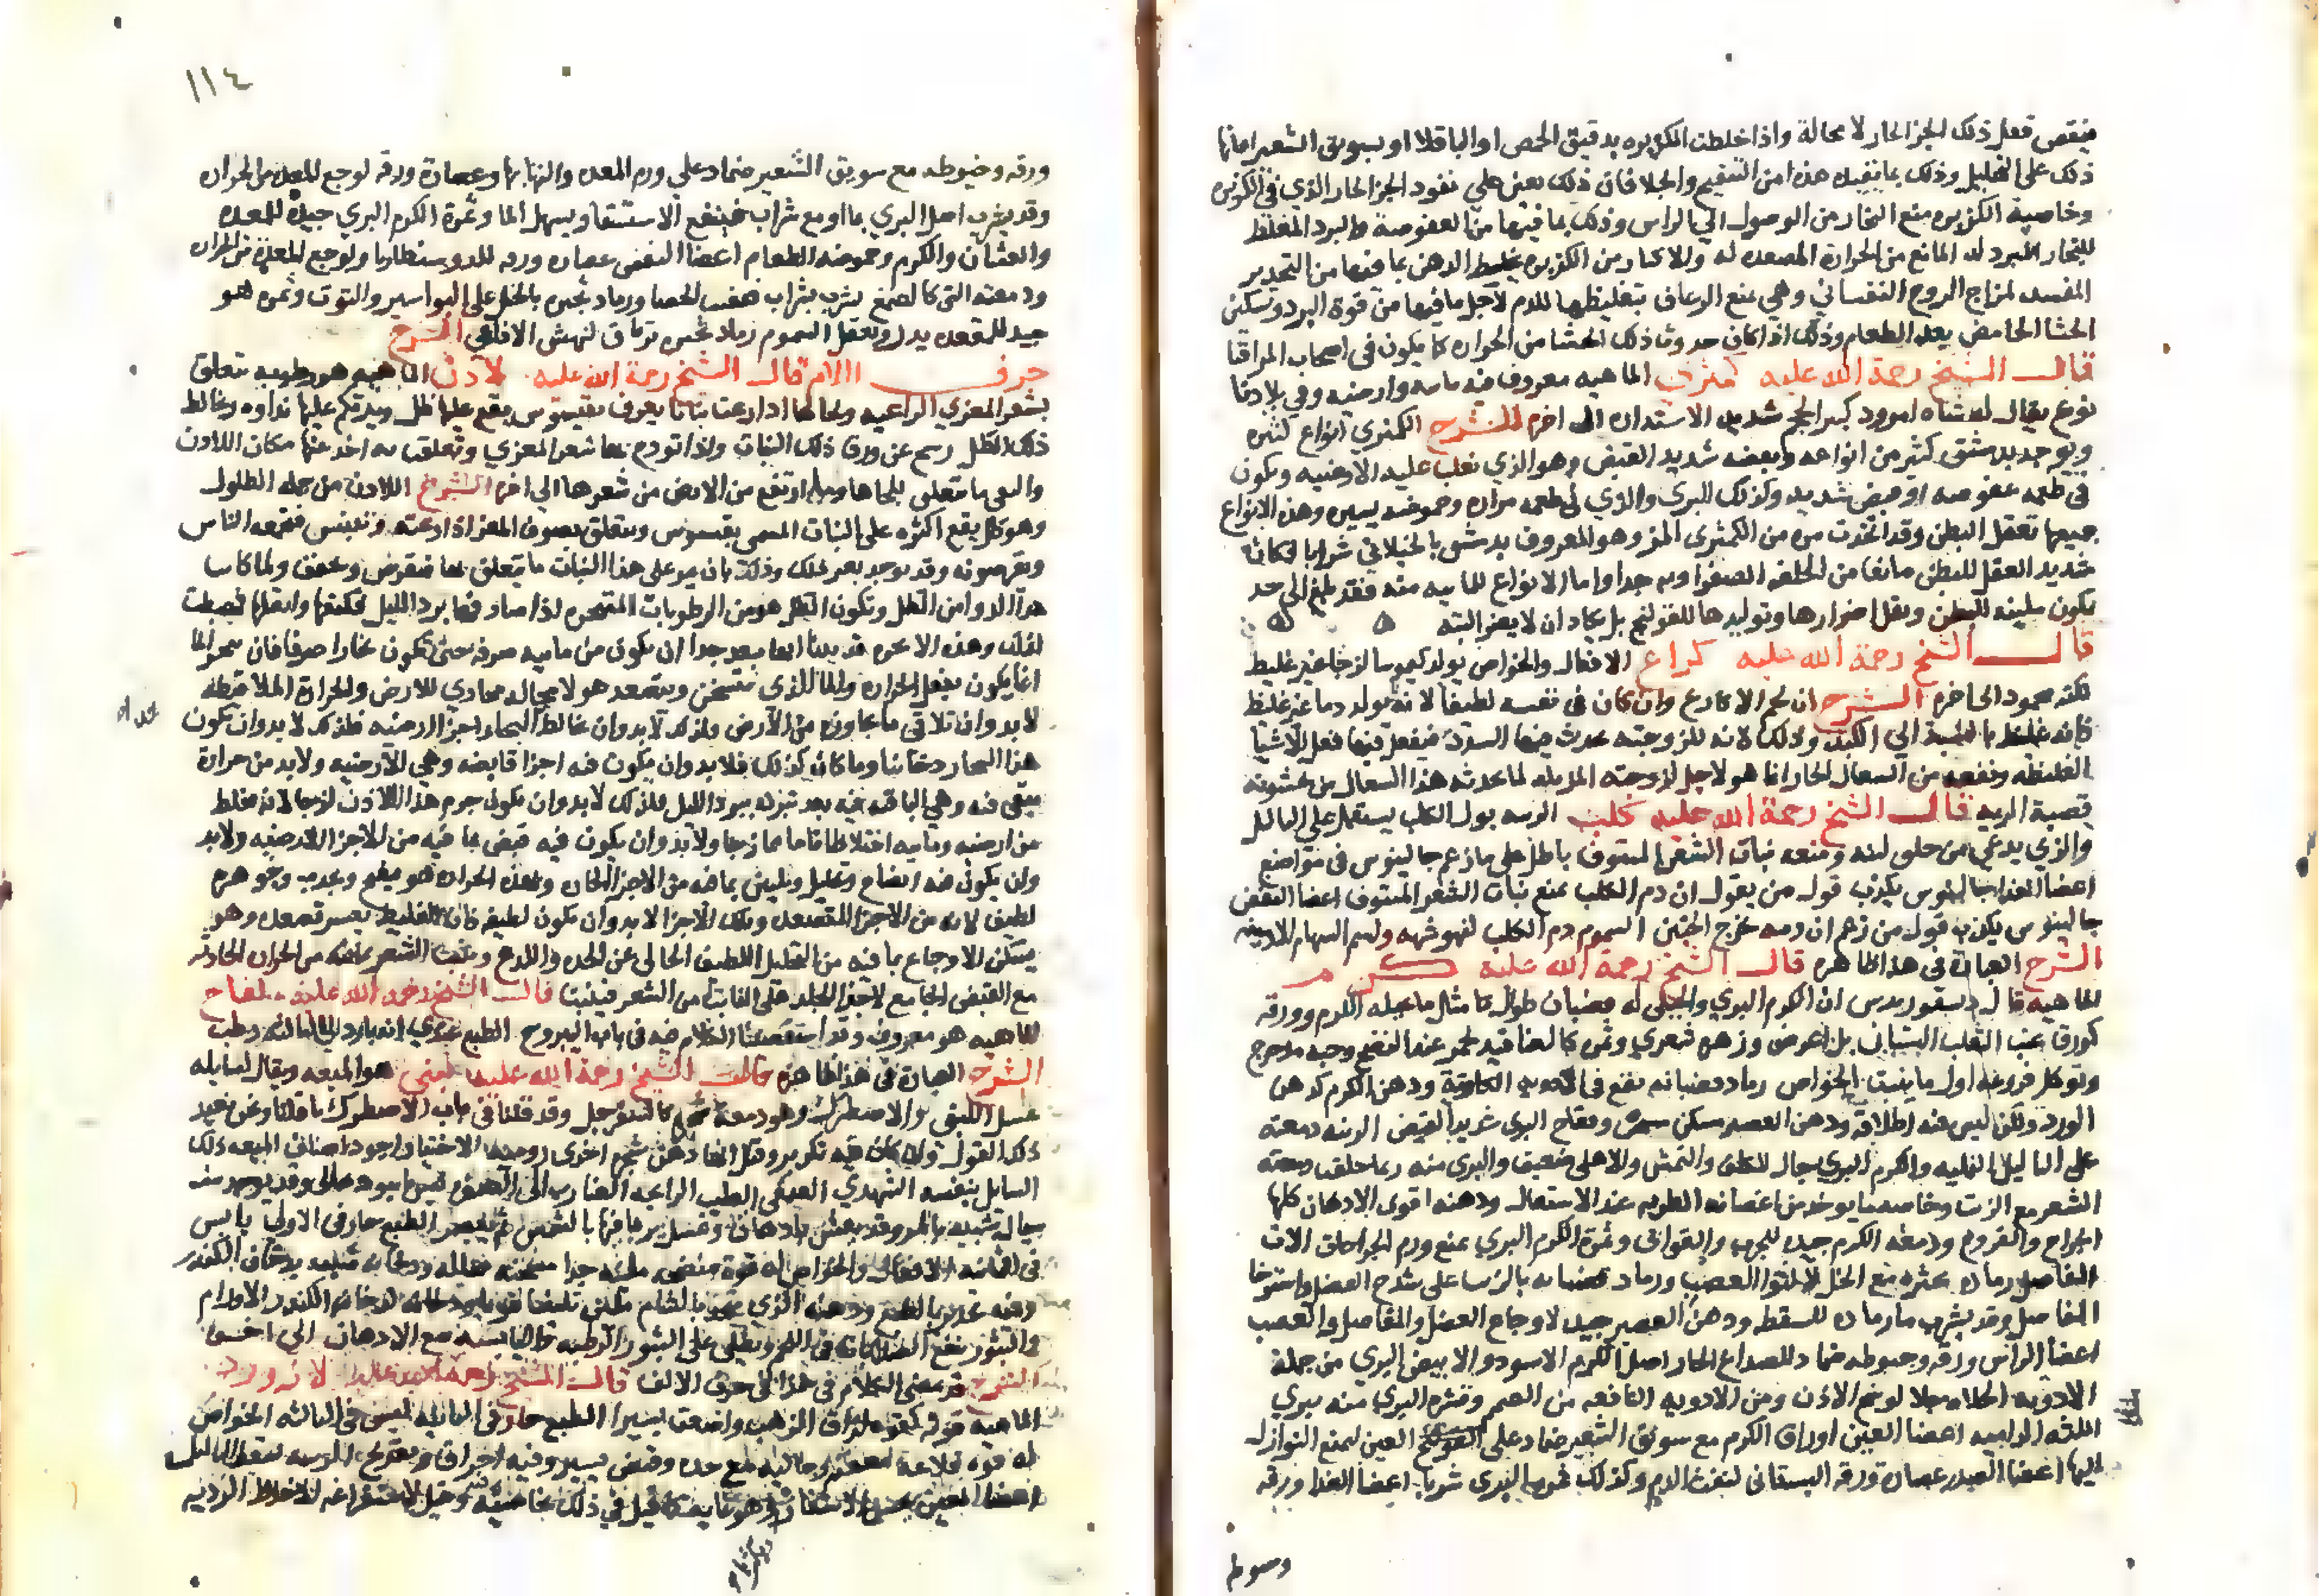 فينقص فعل ذلك الجزء الحار لا محالة واذا خلطت الكزبره بدقيق الحمص او الباقلا او بسويق الشعير اعانها
ذلك على التحليل وذلك بما تفيده هذه من التفتيح والجلا فان ذلك يعين على نفوذ الجزء الحار الذي في الكزبره
وخاصية الكزبره منع البخار من الوصول الي الراس وذلك بما فيها من العفوصة والبرد المغلظ
للبخار المبرد له المانع من الحرارة المصعده له والاكثار من الكزبره يخلط الذهن بما فيها من التخدير
المفسد لمزاج الروح النفساني وهي تمنع الرعاف بتغليظها للدم لاجل ما فيها من قوة البرد وتسكن
الجشا الحامض بعد الطعام وذلك اذا كان حدوث ذلك الجشا من الحراره كما يكون في اصحاب المراقيا
قال الشيخ رحمة الله عليه كمثري الماهيه معروف فيه مائيه وارضيه وفي بلادنا
نوع يقال له شاه امرود كبير الحجم شديد الاستداره الى اخره الشرح الكمثري انواع كثيره
ويوجد بدمشق كثير من انواعه وبعضه شديد القبض وهو الذي تغلب عليه الارضيه ويكون
في طعمه عفوصه او قبض شديد وكذلك البري والذي في طعمه مراره وحموضه يسيره وهذه الانواع
جميعها تعقل البطن وقد اتخذت مره من الكمثرى المز وهو المعروف بدمشق بالخيلاني شرابا فكان
شديد العقل للبطن مانعا من الخلفه الصفراويه جدا واما الانواع المائيه منه فقد تبلغ الى حد
يكون ملينه للبطن ويقل اضرارها وتوليدها للقولنج بل يكاد ان لا يضر البته
قال الشيخ رحمة الله عليه كراع الافعال والخواص يولد كيموسا لزجا غير غليظ
لكنه محمود الى اخره الشرح ان لحم الاكارع وان كان في نفسه لطيفا لانه يولد دما غير غليظ
فانه غليظ بالنسبة الي الكبد وذلك لانه للزوجته يحدث فيها السدد فيفعل فيها فعل الاشيا
الغليظه ونفعه من السعال الحار انما هو لاجل لزوجته المزيله لما يحدثه هذا السعال من خشونة
قصبة الريه قال الشيخ رحمة الله عليه كلب الزينه بول الكلب يستعمل على الثاليل
والذي يدعي من حلق لبنه ومنعه نبات الشعر المنتوف باطل على ما زعم جالينوس في مواضع
اعضا الغذا جالينوس يكذب قول من يقول ان دم الكلب يمنع نبات الشعر المنتوف اعضا النفض
جالينوس يكذب قول من زعم ان دمه يخرج الجنين السموم دم الكلب لنهوشهه ولسم السهام الارمينيه
الشرح العبارة في هذا ظاهره قال الشيخ رحمة الله عليه كرم
الماهيه قال ديسقوريدس ان الكرم البري والجبلى له قضبان طوال كامثال ما يحمله الكرم وورقه
كورق عنب الثعلب البستاني بل اعرض وزهره شعري وثمره كالعناقيد تحمر عند النضج وحبه مدحرج
وتوكل فروعه اول ما ينبت الخواص رماد قضبانه يقع في الادويه الكاويه ودهن الكرم كدهن
الورد ولكن ليس فيه اطلاقه ودهن العصير مسكن وفقاح البري شديد القبض الزينه دمعته
على الثاليل النمليه والكرم البري يجلو الكلف والنمش والاهلى ضعيف والبري منه ربما حلقت دمعته
الشعر مع الزيت وخاصه ما يوخذ من اغصانه الطريه عند الاستعال ودهنه اقوى الادهان كلها
الجراح والقروح ودمعه الكرم جيده للجرب والقوابى وثمرة الكرم البري تمنع ورم الجراحات الات
المفاصل رماد بحثره مع الخل لالتوا العصب ورماد قضبانه بالزيت على شدخ العضل واسترخا
المفاصل وقد يشرب ما رماده للسقطه ودهن العصير جيد لاوجاع العضل والمفاصل والعصب
اعضا الراس ورقه وخيوطه ضماد للصداع الحار اصل الكرم الاسود والابيض البري من جملة
الادويه الجلاءه لوسخ الاذن ومن الادويه النافعه من الصمم وثمره البري منه يبري
اللثه الداميه اعضا العين اوراق الكرم مع سويق الشعير ضماد على العين ليمنع النوازل
اليها اعضا الصدر عصارة ورقه البستاني لنفث الدم وكذلك ثمره البري شربا اعضا الغذا ورقه
وخيوطه
١١٤
ورقه وخيوطه مع سويق الشعير ضماد على ورم المعده والتهابها وعصارة ورقه لوجع المعده من الحراره
وقد يشرب اصل البري بما او مع شراب فينفع الاستسقا ويسهل الما وثمرة الكرم البري جيده للمعده
والغثيان والكرم وحموضه الطعام اعضا النفض عصاره ورقه للدوسنطاريا ولوجع المعده من الحراره
ودمعته التي كالصمغ يشرب بشراب فيفتت الحصا ورماد ثجيره بالخل على البواسير والتوت وثمره هو
جيد للمقعده يدر ويعقل السموم رماد ثجيره ترياق لنهش الافاعى الشرح
حرف اللام قال الشيخ رحمة الله عليه لاذن الماهيه هو رطوبه تتعلق
بشعر المعزي الراعيه ولحاها اذا رعت نباتا يعرف بقيسوس يقع عليها طل ويرتكم عليها نداوه ويخالط
ذلك الطل رسح عن ورق ذلك النبات واذا تودع بها شعر المعزي وتعلقت به اخذ عنها مكان اللاذن
والنقى ما تعلق بلحاها وبما ارتفع من الارض من شعرها الي اخره الشرح اللاذن من جمله الطلول
وهو طل يقع اكثره على النبات المسمى بقيسوس ويتعلق بصوف المعز اذا رعته فيجمعه الناس
ويقرصونه وقد يوجد بغير ذلك وذلك بان يمر على هذا النبات ما يتعلق بها فيقرض ويجفف ولما كان
هذا الدوا من الطل وتكون الطل هو من الرطوبات المتبخره اذا صادفها برد الليل فكثفها واثقلها فهبطت
لذلك وهذه الابخره قد بينا انها يبعد جدا ان يكون من مائيه صرفه حتى تكون بخارا صرفا فان تبخر الما
انما يكون بفعل الحراره والما الذي يتسخن ويتصعد هو لا محاله مجاور للارض والحرارة الملاقيه له
لا بد وان تلاقي ما يجاوره من الارض ولذلك لا بد وان يخالط البخار اجزا ارضيه فلذلك لا بد وان يكون
هذا البخار دخانيا وما كان كذلك فلا بد وان يكون فيه اجزا قابضه وهي الارضيه ولا بد من حرارة
تبقى فيه وهي الباقيه فيه بعد تبرده ببرد الليل فلذلك لا بد وان يكون جرم هذا اللاذن لزجا لانه مختلط
من ارضيه ومائيه اختلاطا تاما ممازجا ولا بد وان يكون فيه قبض بما فيه من الاجزا الارضيه ولا بد
وان يكون فيه انضاج وتحليل وتليين بما فيه من الاجزا الحاره وبهذه الحراره هو مفتح ويجذب وجوهره
لطيف لانه من الاجزا المتصعده وتلك الاجزا لا بد وان تكون لطيفه فان الغليظ يعسر تصعده وهو
يسكن الاوجاع بما فيه من التحليل اللطيف الخالى عن الحده واللذع وينبت الشعر بما فيه من الحراره الجاذبه
مع القبض الجامع لاجزا الجلد على النابت من الشعر فيثبتها قال الشيخ رحمه الله عليه لفاح
الماهيه هو معروف وقد استقصينا الكلام فيه في باب اليبروح الطبع عندي انه بارد الى الثالثه رطب
الشرح العبارة في هذا ظاهره قال الشيخ رحمة الله عليه لبنى هو الميعه ويقال لسايله
عسل اللبنى والاصطرك وهو دمعة شجره كالسفرجل وقد قلنا في باب الاصطرك ما قلنا ونحن نعيد
ذلك القول وان كان فيه تكرير وقيل انها دهن شجره اخرى روميه الاختيار اجود اصناف الميعه ذلك
السايل بنفسه الشهدي الصمغى الطيب الرايحه الضارب الى الصفره ليس باسود نخالى وقد يوجد منه
سيال شبيه بالمر وقد يغش بادهان وعسل يربا فيها بالشمس ثم يعصر الطبع حار في الاولى يابس
في الثانيه الافعال والخواص له قوة منضجه ملينه جدا مسخنه محلله ودخانه شبيه بدخان الكندر
وفيه تخدير بالطبع ودهنه الذي يتخذ بالشام ملين تليينا قويا ودخانه كدخان الكندر الاورام
والبثور ينفع الصلابات في اللحم ويطلى على البثور الرطبه واليابسه مع الادهان الى اخره
الشرح قد مضى الكلام في هذا في حرف الالف قال الشيخ رحمة الله عليه لازورد
الماهيه قوته كقوة لزاق الذهب واضعف يسيرا الطبع حار في الثانيه يابس في الثالثه الخواص
له قوه قلاعة معفنه وجاليه مع حده وقبض يسير وفيه احراق وتقريح الزينه يسقط الثاليل
اعضا العين يحسن الاشفار وهو غايه فيه قيل في ذلك بخاصيته وقيل لاستفراغه الاخلاط الرديه